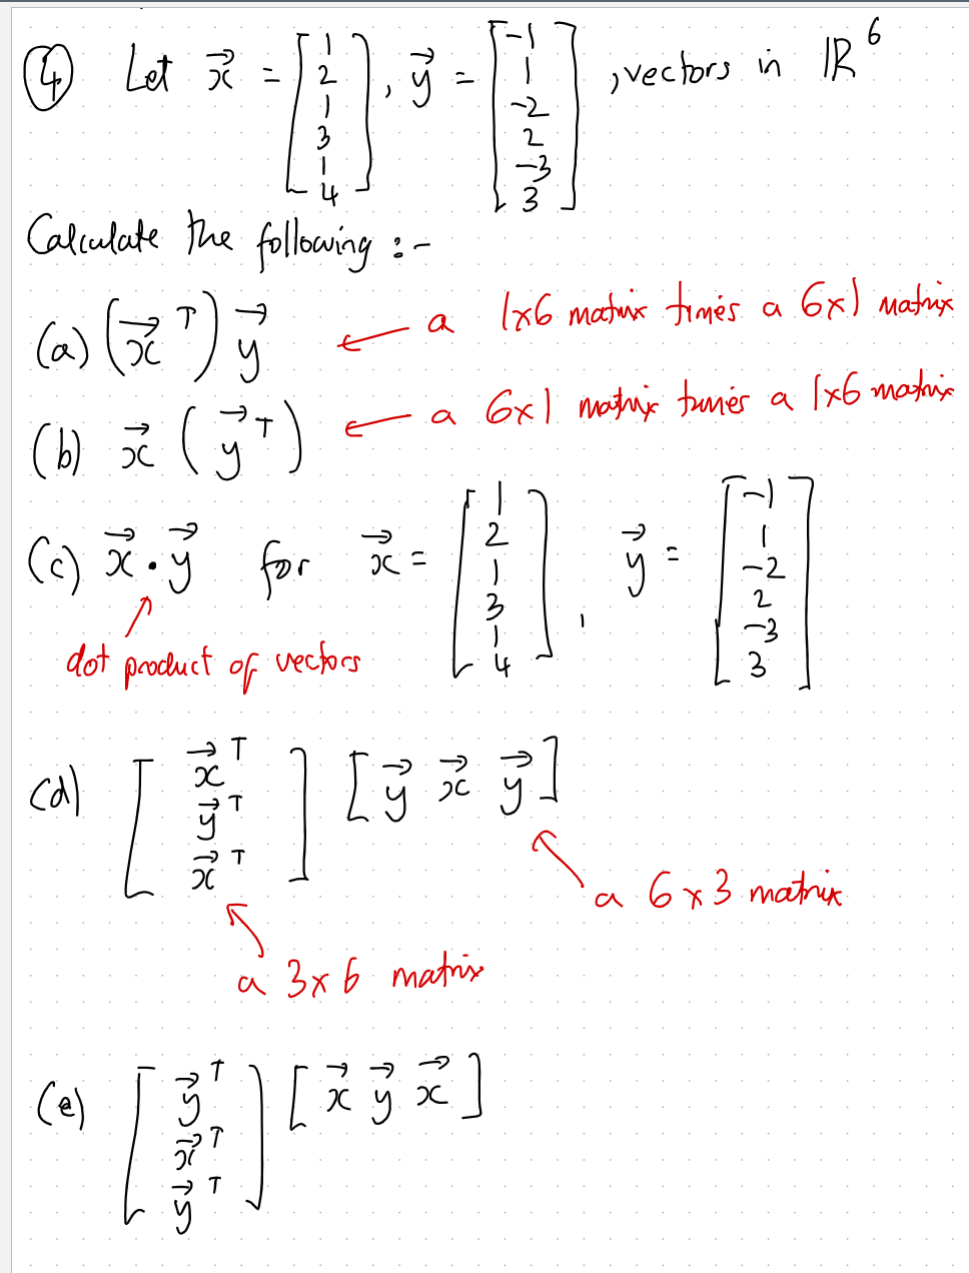 ④ Let x⃗ = [1 2 1 3 1 4], y⃗ = [-1 1 -2 2 -3 3], vectors in ℝ⁶
Calculate the following :-
(a) (x⃗ᵀ) y⃗ ← a 1x6 matrix times a 6x1 matrix
(b) x⃗ (y⃗ᵀ) ← a 6x1 matrix times a 1x6 matrix
(c) x⃗ · y⃗ for x⃗ = [1 2 1 3 1 4], y⃗ = [-1 1 -2 2 -3 3]
dot product of vectors
(d) [x⃗ᵀ y⃗ᵀ x⃗ᵀ] [y⃗ x⃗ y⃗]
a 6x3 matrix
a 3x6 matrix
(e) [y⃗ᵀ x⃗ᵀ y⃗ᵀ] [x⃗ y⃗ x⃗]